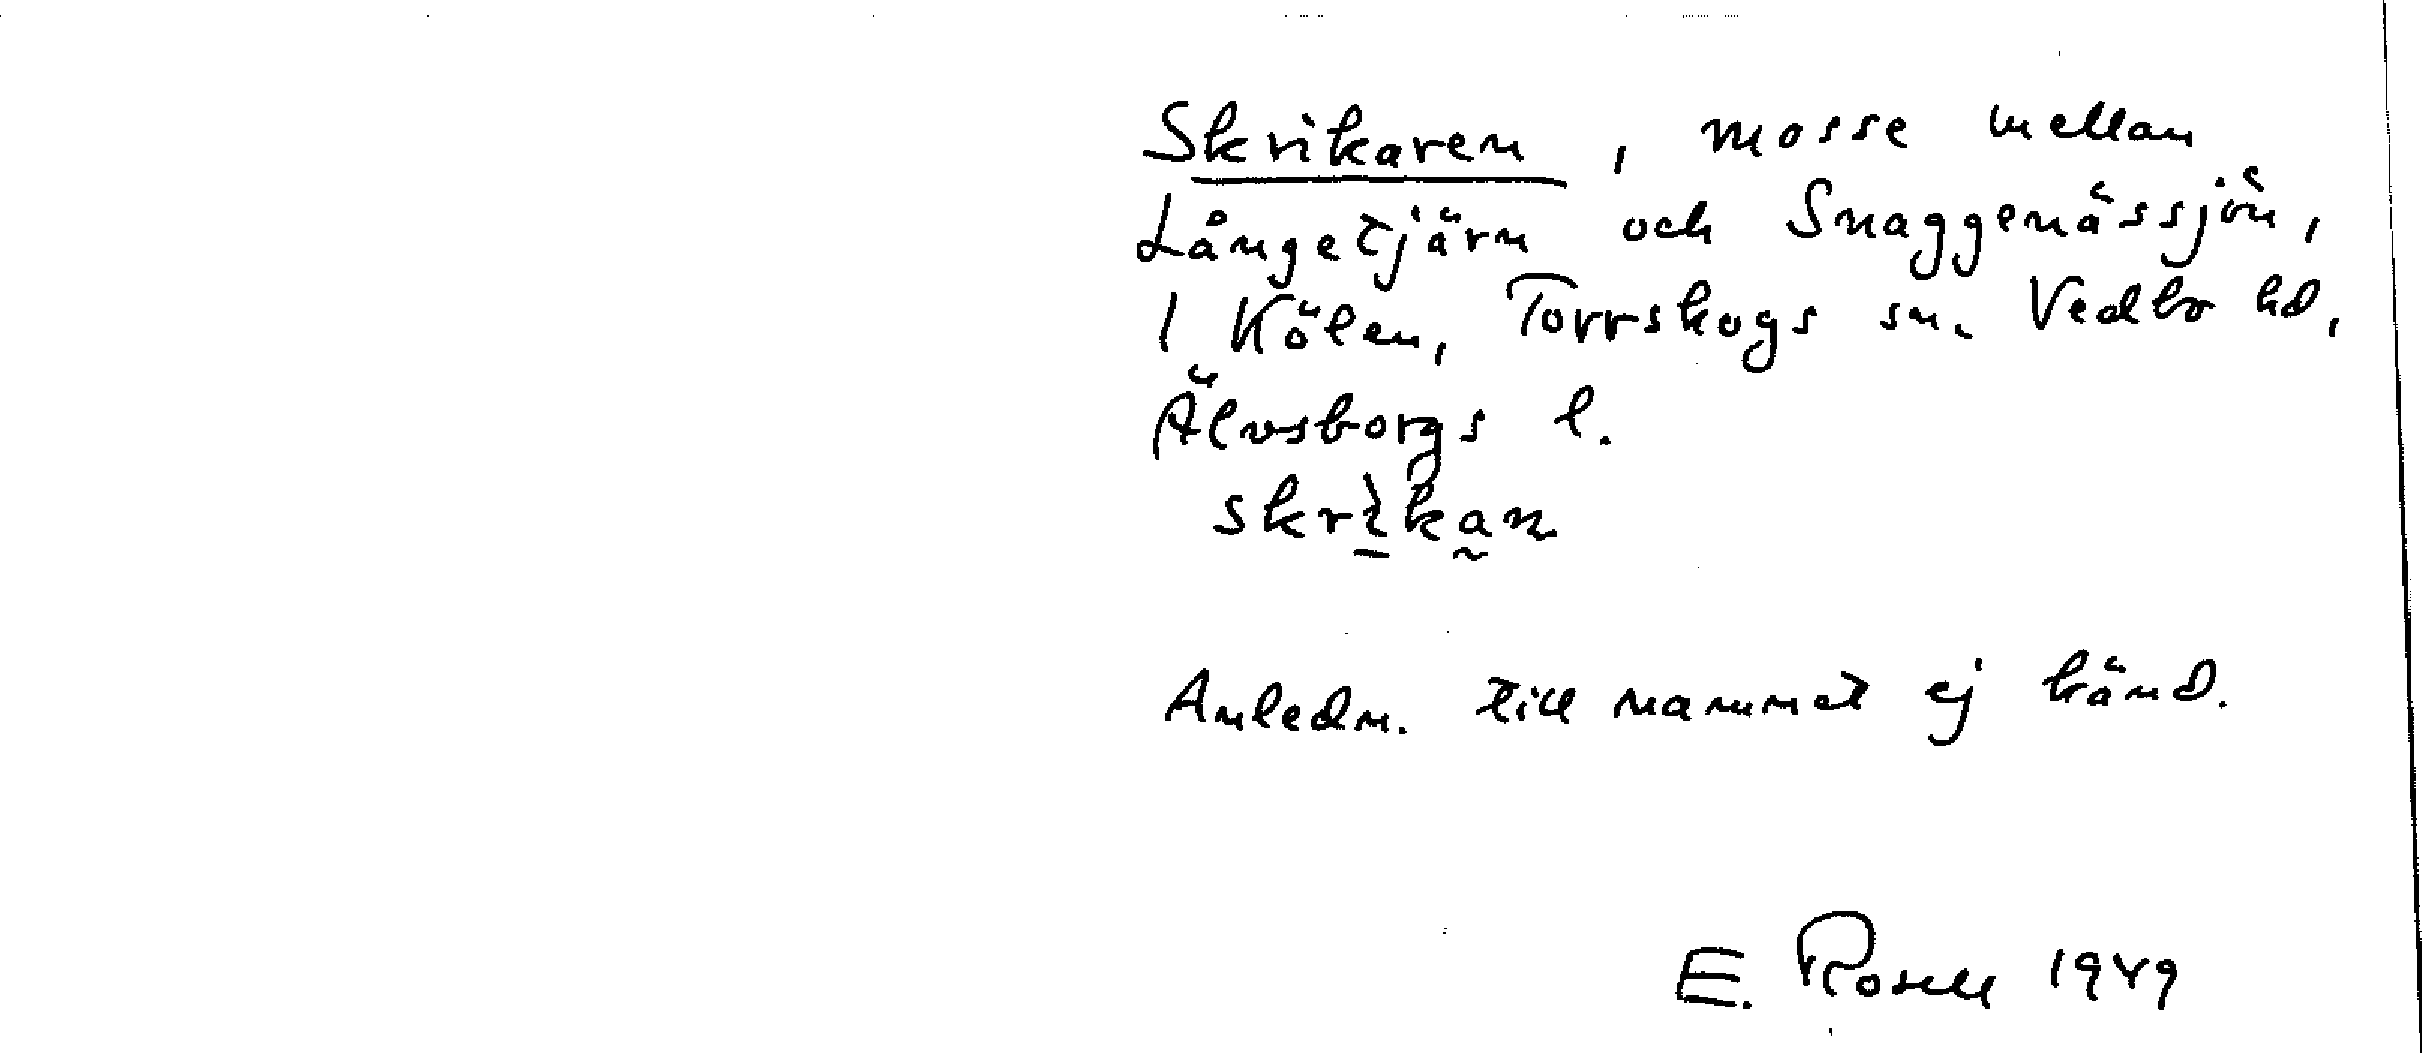 Skrikaren, mosse mellan
Långetjärn och Snaggenässjön,
I Kölen, Torrskogs sn. Vedbo hd,
Älvsborgs l.
skrìkan
Anledn. till namnet ej känd.
E. Rosell 1949